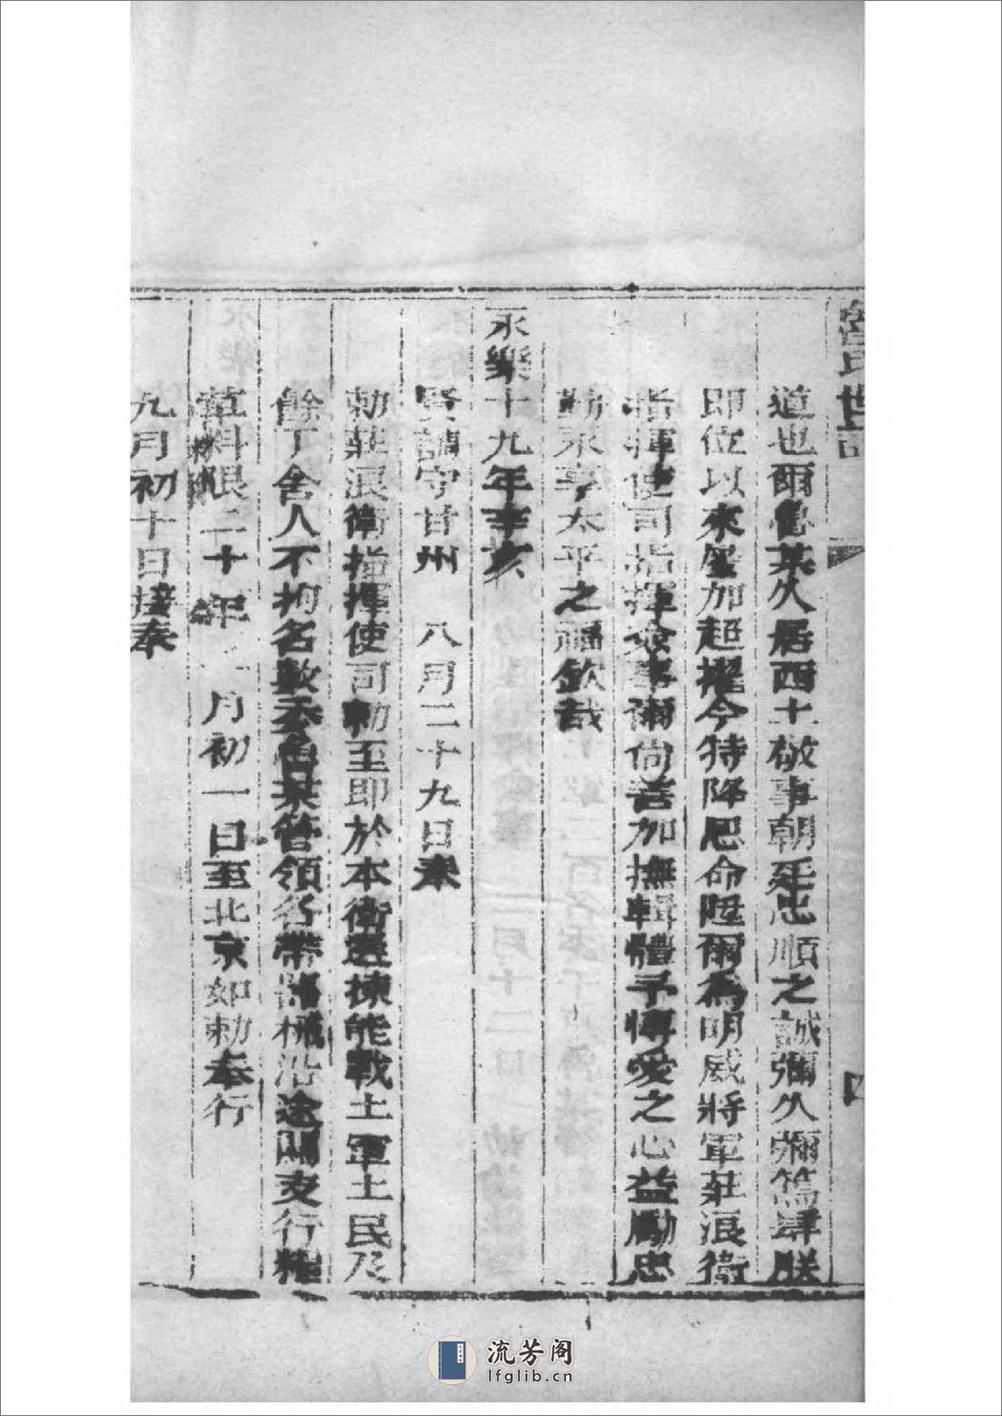 魯氏世
道也爾魯某久居西土敬事朝廷忠順之誠彌久彌篤肆朕
即位以來屢加超擢今特降恩命陞爾為明威將軍莊浪衛
指揮使司指揮僉事爾尚善加撫輯體予博愛之心益勵忠
勤永享太平之福欽哉
永樂十九年辛亥
賢調守甘州 八月二十九日奉
勅莊浪衛指揮使司勅至即於本衛選揀能戰土軍土民及
餘丁舍人不拘名數委魯某管領各帶器械沿途關支行糧
草料限二十年 月初一日至北京如勅奉行
九月初十日接奉
流芳阁
lfglib.cn